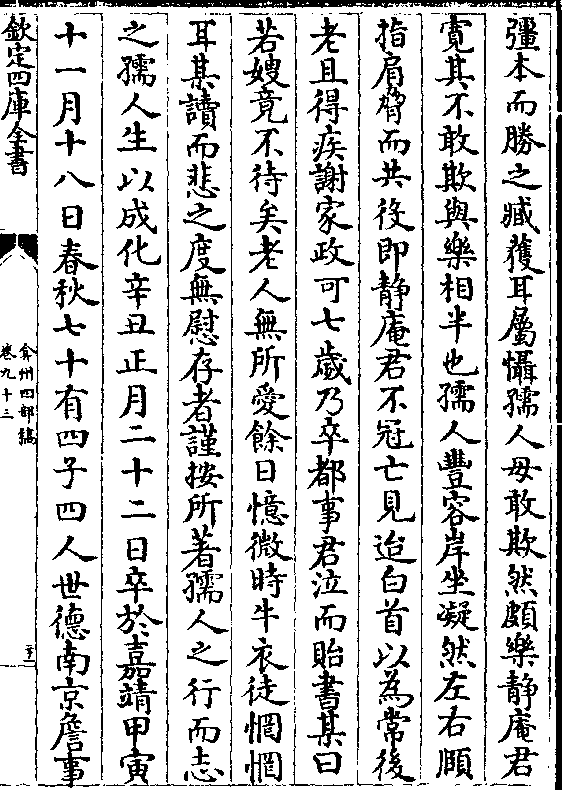 彊本而勝之臧獲耳屬懾孺人毋敢欺然頗樂靜庵君
寛其不敢欺與樂相半也孺人豐容岸坐凝然左右頤
指肩脅而共役即靜庵君不冠亡見迨白首以為常後
老且得疾謝家政可七歲乃卒都事君泣而貽書某曰
若嫂竟不待矣老人無所愛餘日憶微時牛衣徒惘惘
耳某讀而悲之度無慰存者謹按所著孺人之行而志
之孺人生以成化辛丑正月二十二日卒於嘉靖甲寅
十一月十八日春秋七十有四子四人世德南京詹事
欽定四庫全書
弇州四部稿
卷九十三